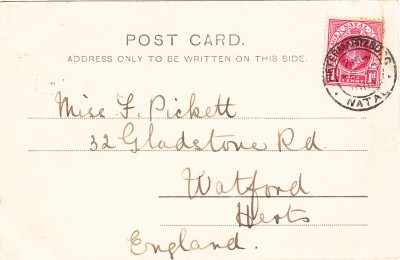 POST CARD.
ADDRESS ONLY TO BE WRITTEN ON THIS SIDE.
NATAL
PIETERMARITZBURG
NATAL
Miss F. Pickett
32 Gladstone Rd
Watford
Herts
England.